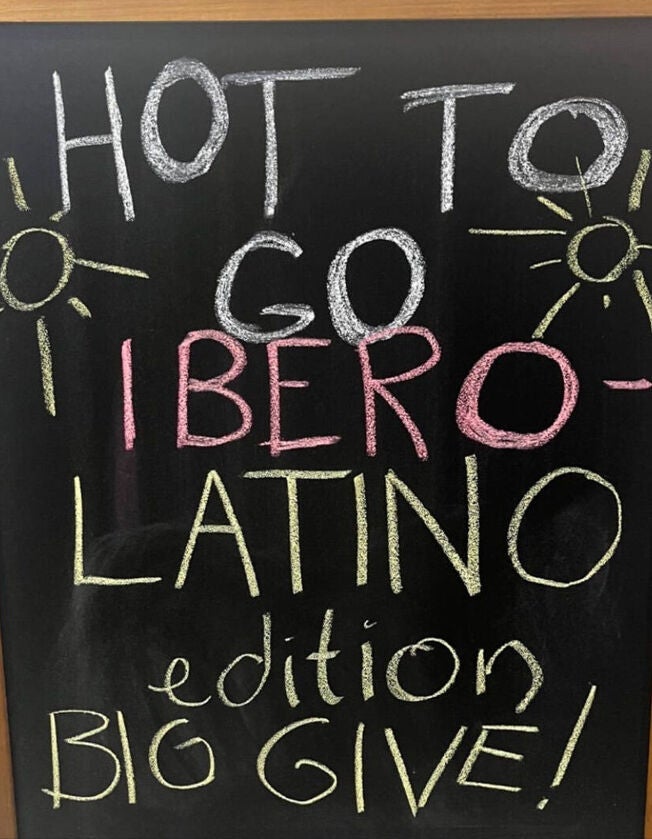 HOT TO
GO
IBERO-
LATINO
edition
BIG GIVE!